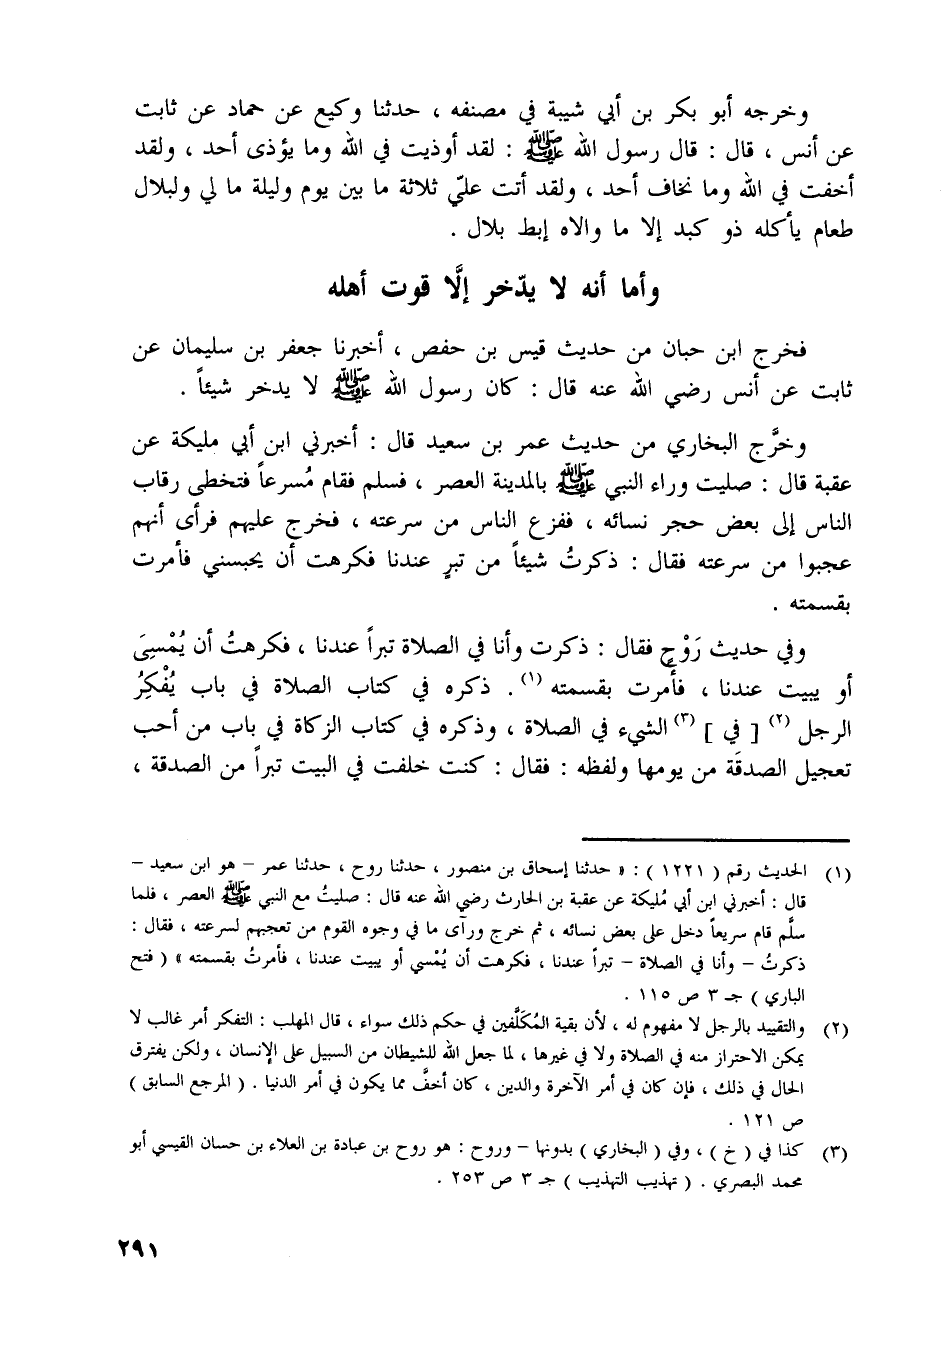 وخرجه أبو بكر بن أبي شيبة في مصنفه ، حدثنا وكيع عن حماد عن ثابت
عن أنس ، قال : قال رسول الله ﷺ : لقد أوذيت في الله وما يؤذى أحد ، ولقد
أخفت في الله وما نخاف أحد ، ولقد أتت عليّ ثلاثة ما بين يوم وليلة ما لي ولبلال
طعام يأكله ذو كبد إلا ما والاه إبط بلال .
وأما أنه لا يدّخر إلَّا قوت أهله
فخرج ابن حبان من حديث قيس بن حفص ، أخبرنا جعفر بن سليمان عن
ثابت عن أنس رضي الله عنه قال : كان رسول الله ﷺ لا يدخر شيئاً .
وخرَّج البخاري من حديث عمر بن سعيد قال : أخبرني ابن أبي مليكة عن
عقبة قال : صليت وراء النبي ﷺ بالمدينة العصر ، فسلم فقام مُسرعاً فتخطى رقاب
الناس إلى بعض حجر نسائه ، ففزع الناس من سرعته ، فخرج عليهم فرأى أنهم
عجبوا من سرعته فقال : ذكرتُ شيئاً من تبرٍ عندنا فكرهت أن يحبسني فأمرت
بقسمته .
وفي حديث رَوْحٍ فقال : ذكرت وأنا في الصلاة تبراً عندنا ، فكرهتُ أن يُمْسِىَ
أو يبيت عندنا ، فأمرت بقسمته (١) . ذكره في كتاب الصلاة في باب يُفْكِرُ
الرجل (٢) [ في ] (٣) الشيء في الصلاة ، وذكره في كتاب الزكاة في باب من أحب
تعجيل الصدقَة من يومها ولفظه : فقال : كنت خلفت في البيت تبراً من الصدقة ،
(١) الحديث رقم ( ١٢٢١ ) : « حدثنا إسحاق بن منصور ، حدثنا روح ، حدثنا عمر – هو ابن سعيد –
قال : أخبرني ابن أبي مُليكة عن عقبة بن الحارث رضي الله عنه قال : صليتُ مع النبي ﷺ العصر ، فلما
سلَّم قام سريعاً دخل على بعض نسائه ، ثم خرج ورآى ما في وجوه القوم من تعجبهم لسرعته ، فقال :
ذكرتُ – وأنا في الصلاة – تبراً عندنا ، فكرهت أن يُمْسي أو يبيت عندنا ، فأمرتُ بقسمته » ( فتح
الباري ) جـ ٣ ص ١١٥ .
(٢) والتقييد بالرجل لا مفهوم له ، لأن بقية المُكَلَّفين في حكم ذلك سواء ، قال المهلب : التفكر أمر غالب لا
يمكن الاحتراز منه في الصلاة ولا في غيرها ، لما جعل الله للشيطان من السبيل على الإنسان ، ولكن يفترق
الحال في ذلك ، فإن كان في أمر الآخرة والدين ، كان أخفَّ مما يكون في أمر الدنيا . ( المرجع السابق )
ص ١٢١ .
(٣) كذا في ( خ ) ، وفي ( البخاري ) بدونها – وروح : هو روح بن عبادة بن العلاء بن حسان القيسي أبو
محمد البصري . ( تهذيب التهذيب ) جـ ٣ ص ٢٥٣ .
٢٩١